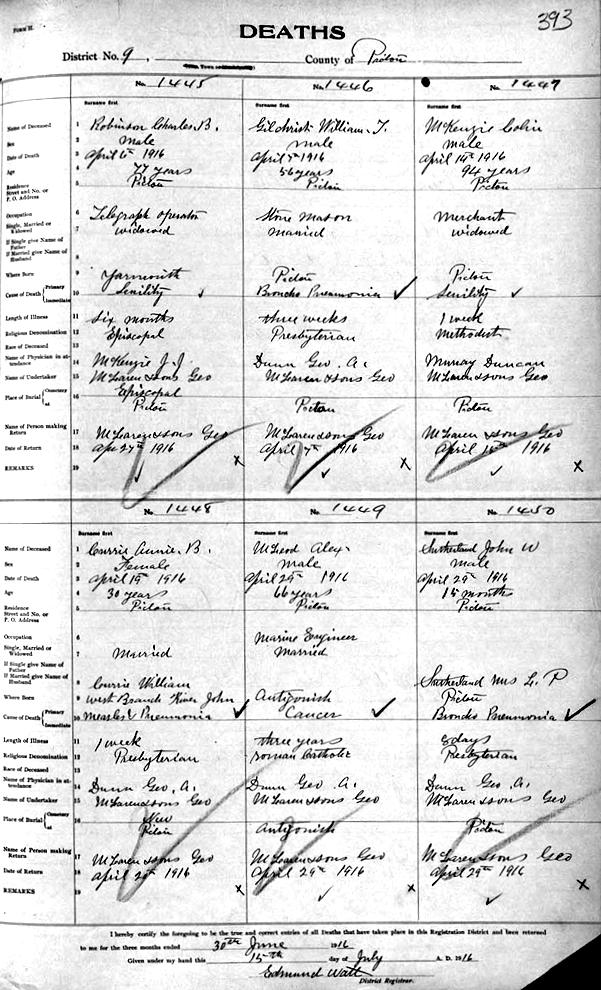 FORM H.
393
DEATHS
District No. 9, County of Pictou
No. 1445 No. 1446 No. 1447
Surname first Surname first Surname first
Name of Deceased 1 Robinson Charles. B. Gilchrist William. T. McKenzie Colin
Sex 2 male male male
Date of Death 3 April 6th 1916 April 7th 1916 April 14th 1916
Age 4 77 years 56 years 94 years
Residence Street and No. or P. O. Address 5 Pictou Pictou Pictou
Occupation 6 Telegraph operator Stone Mason Merchant
Single, Married or Widowed 7 widowed married widowed
If Single give Name of Father 8
If Married give Name of Husband
Where Born 9 Yarmouth Pictou Pictou
Cause of Death Primary Immediate 10 Senility Broncho Pneumonia Senility
Length of Illness 11 Six months three weeks 1 week
Religious Denomination 12 Episcopal Presbyterian Methodist
Race of Deceased 13
Name of Physician in attendance 14 McKenzie J. J. Dunn Geo. A. Murray Duncan
Name of Undertaker 15 McLaren & sons Geo McLaren & sons Geo McLaren & sons Geo
Place of Burial Cemetery at 16 Episcopal
Pictou Pictou Pictou
Name of Person making Return 17 McLaren & sons Geo McLaren & sons Geo McLaren & sons Geo
Date of Return 18 Apr 27th 1916 April 7th 1916 April 1916
REMARKS 19 x x x
No. 1448 No. 1449 No. 1450
Surname first Surname first Surname first
Name of Deceased 1 Currie Annie. B. McLeod Alex. Sutherland John W
Sex 2 Female male male
Date of Death 3 April 19th 1916 April 29th 1916 April 29th 1916
Age 4 30 years 66 years 15 months
Residence Street and No. or P. O. Address 5 Pictou Pictou Pictou
Occupation 6 Marine Engineer
Single, Married or Widowed 7 Married Married
If Single give Name of Father 8
If Married give Name of Husband Currie William Sutherland Mrs L. P
Where Born 9 West Branch River John Antigonish Pictou
Cause of Death Primary Immediate 10 Measles & Pneumonia Cancer Broncho Pneumonia
Length of Illness 11 1 week three years 8 days
Religious Denomination 12 Presbyterian roman Catholic Presbyterian
Race of Deceased 13
Name of Physician in attendance 14 Dunn Geo. A. Dunn Geo. A. Dunn Geo. A.
Name of Undertaker 15 McLaren & sons Geo McLaren & sons Geo McLaren & sons Geo
Place of Burial Cemetery at 16 New
Pictou Antigonish Pictou
Name of Person making Return 17 McLaren & sons Geo McLaren & sons Geo McLaren & sons Geo
Date of Return 18 April 1916 April 29th 1916 April 29th 1916
REMARKS 19 x x x
I hereby certify the foregoing to be the true and correct entries of all Deaths that have taken place in this Registration District and been returned
to me for the three months ended 30th June 1916
Given under my hand this 15th day of July A. D. 1916
Edmund Watt
District Registrar.